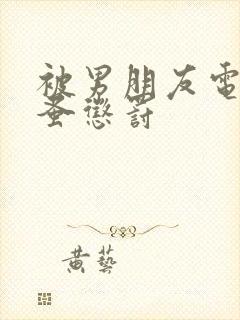 被男朋友電
蚤懲罰
黃藝